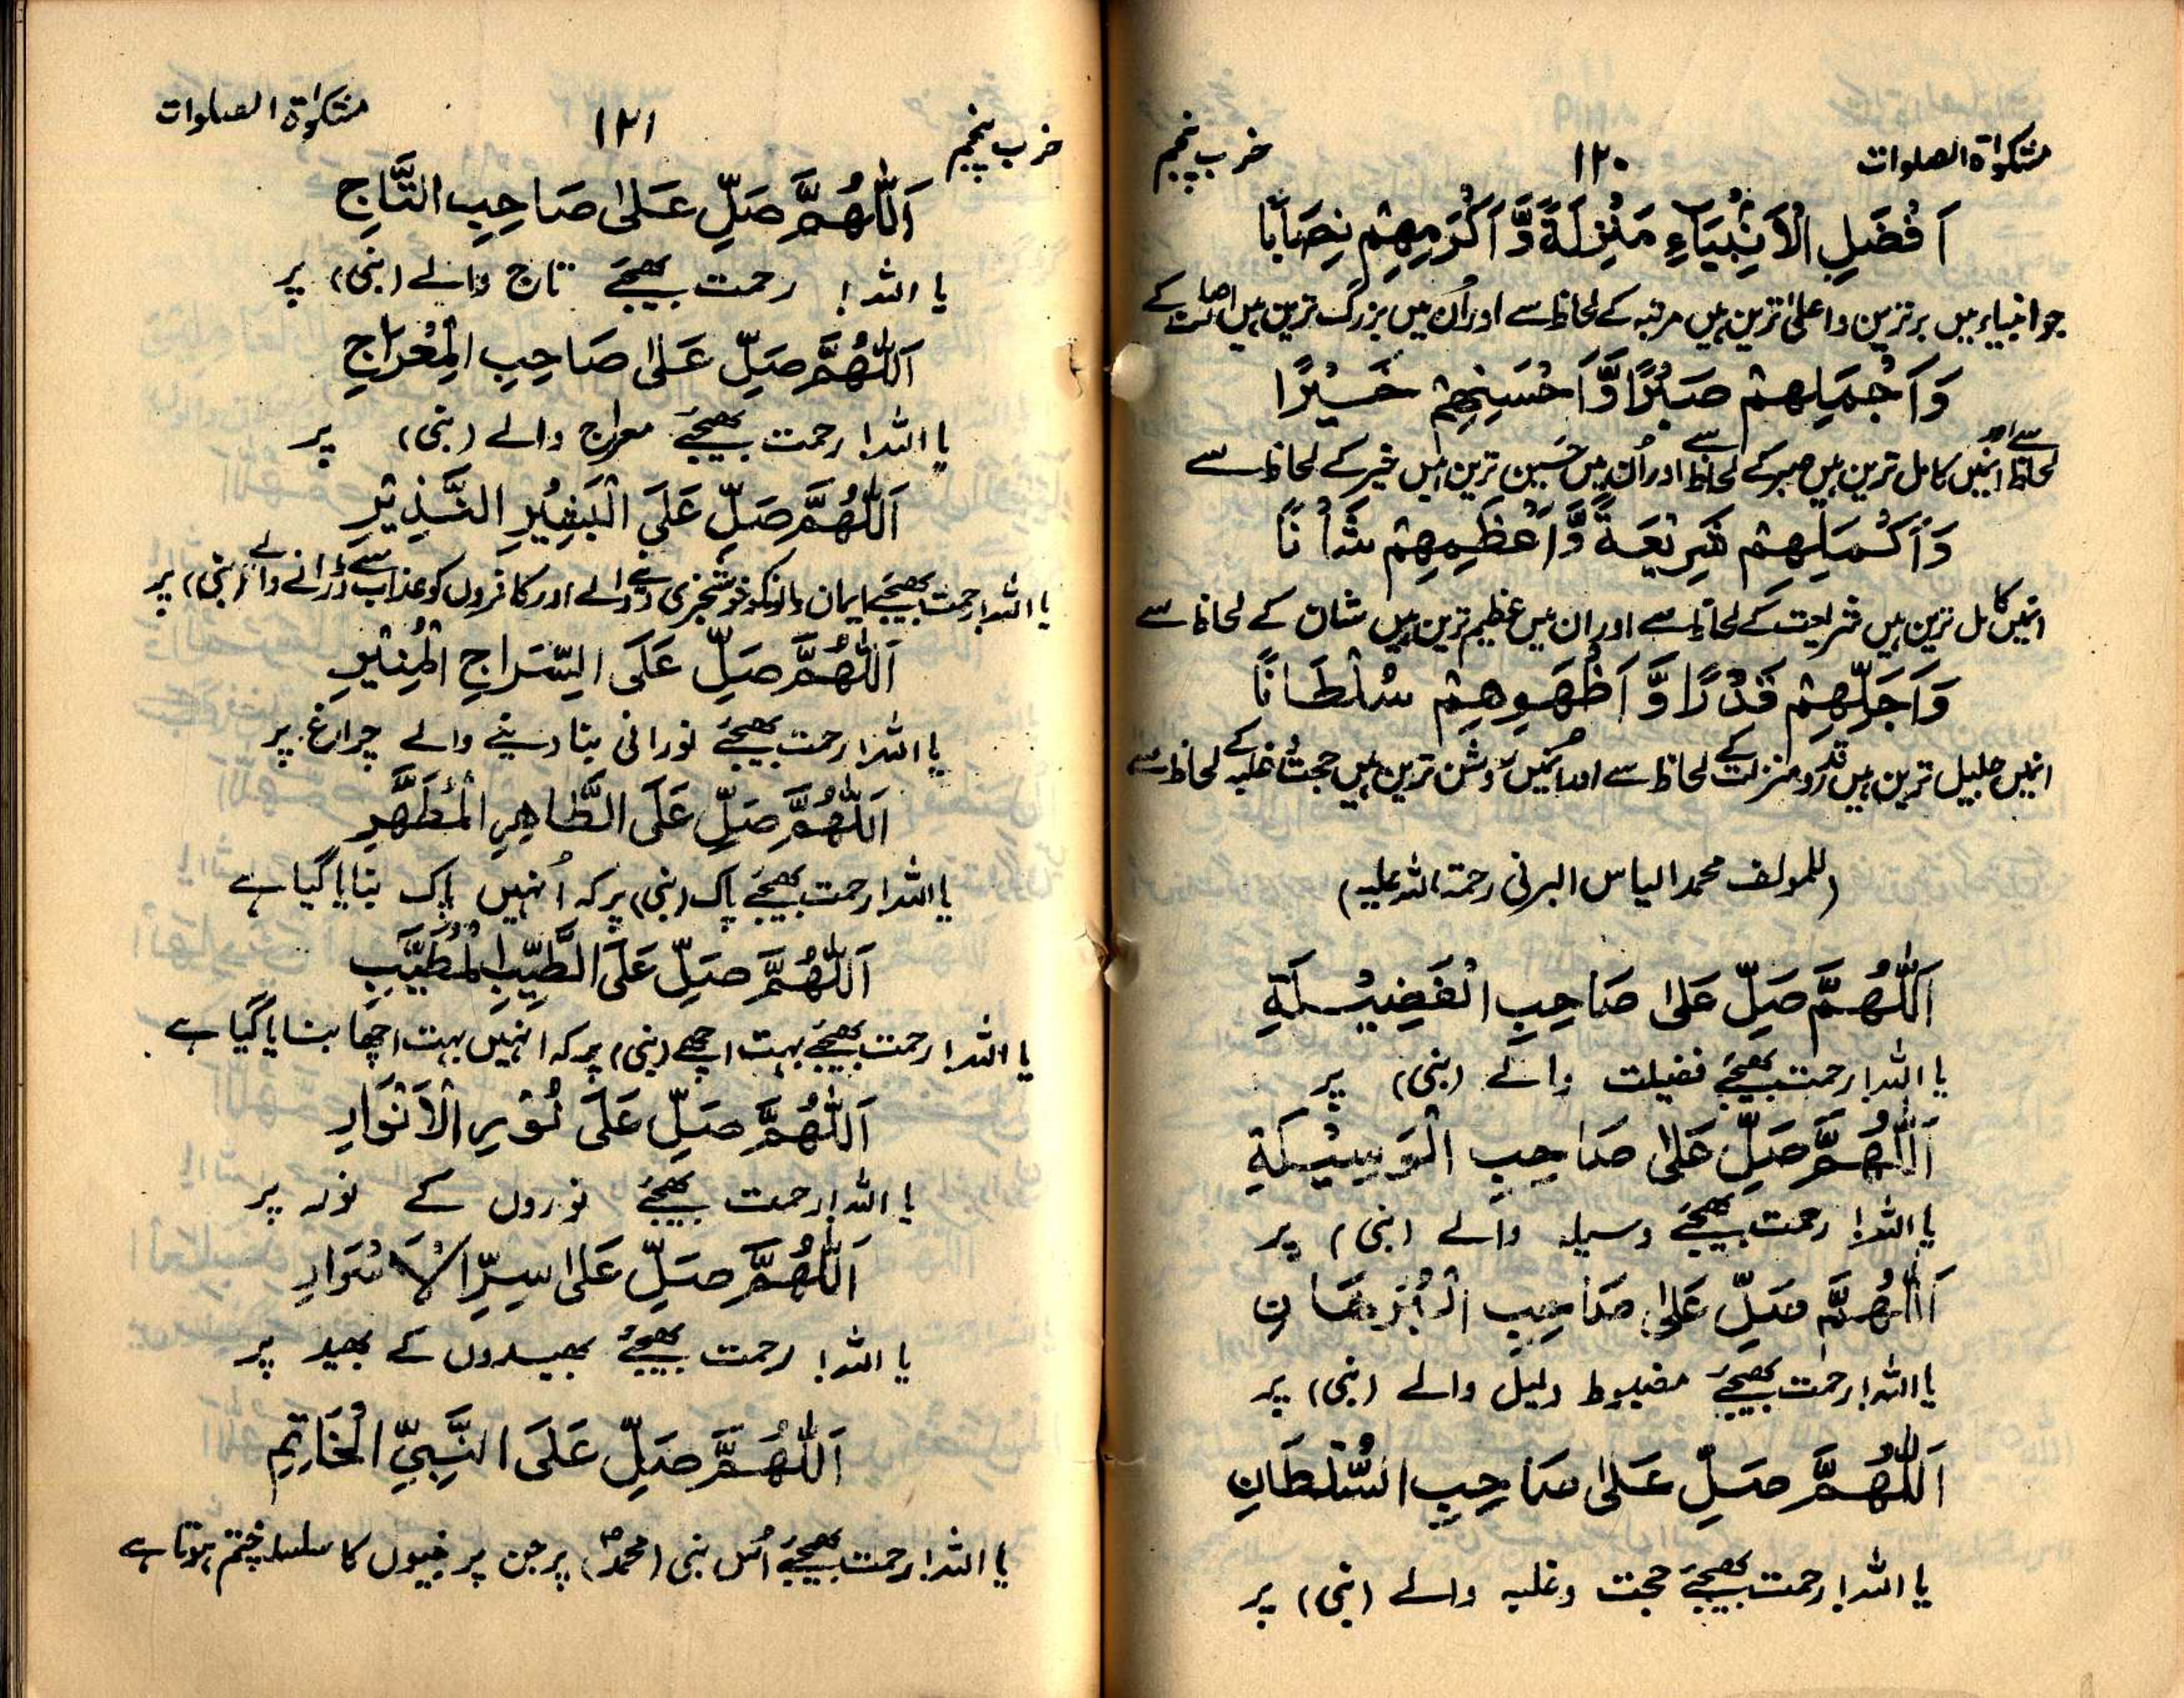 مشکوٰۃ الصلوات
۱۲۰
حزب پنجم
اَفْضَلِ الْاَنْبِیَاءِ مَنْزِلَةً وَّاَکْرَمِهِمْ نِصَابًا
جو انبیاء میں برترین و اعلیٰ ترین ہیں مرتبہ کے لحاظ سے اور اُن میں بزرگ ترین ہیں اصالت کے
وَاَجْمَلِهِمْ صَبْرًا وَّاَحْسَنِهِمْ خَیْرًا
لحاظ سے اور انمیں کامل ترین ہیں صبر کے لحاظ سے اور اُن میں حسین ترین ہیں خیر کے لحاظ سے
وَاَکْمَلِهِمْ شَرِیْعَةً وَّاَعْظَمِهِمْ شَاْنًا
انمیں کامل ترین ہیں شریعت کے لحاظ سے اور ان میں عظیم ترین ہیں شان کے لحاظ سے
وَاَجَلِّهِمْ قَدْرًا وَّاَظْهَرِهِمْ سُلْطَانًا
انمیں جلیل ترین ہیں قدر و منزلت کے لحاظ سے اور انمیں روشن ترین ہیں حجت و غلبہ کے لحاظ سے
(للمولف محمد الیاس البرنی رحمۃ اللہ علیہ)
اَللّٰهُمَّ صَلِّ عَلٰی صَاحِبِ الْفَضِیْلَةِ
یا اللہ! رحمت بھیجئے فضیلت والے (نبی) پر
اَللّٰهُمَّ صَلِّ عَلٰی صَاحِبِ الْوَسِیْلَةِ
یا اللہ! رحمت بھیجئے وسیلہ والے (نبی) پر
اَللّٰهُمَّ صَلِّ عَلٰی صَاحِبِ الْبُرْهَانِ
یا اللہ! رحمت بھیجئے مضبوط دلیل والے (نبی) پر
اَللّٰهُمَّ صَلِّ عَلٰی صَاحِبِ السُّلْطَانِ
یا اللہ! رحمت بھیجئے حجت و غلبہ والے (نبی) پر
مشکوٰۃ الصلوات
۱۲۱
حزب پنجم
اَللّٰهُمَّ صَلِّ عَلٰی صَاحِبِ التَّاجِ
یا اللہ! رحمت بھیجئے تاج والے (نبی) پر
اَللّٰهُمَّ صَلِّ عَلٰی صَاحِبِ الْمِعْرَاجِ
یا اللہ! رحمت بھیجئے معراج والے (نبی) پر
اَللّٰهُمَّ صَلِّ عَلَی الْبَشِیْرِ النَّذِیْرِ
یا اللہ! رحمت بھیجئے ایمان والونکو خوشخبری دینے والے اور کافروں کو عذاب سے ڈرانے والے (نبی) پر
اَللّٰهُمَّ صَلِّ عَلَی السِّرَاجِ الْمُنِیْرِ
یا اللہ! رحمت بھیجئے نورانی بنا دینے والے چراغ پر
اَللّٰهُمَّ صَلِّ عَلَی الطَّاهِرِ الْمُطَهَّرِ
یا اللہ! رحمت بھیجئے پاک (نبی) پر کہ اُنہیں پاک بنایا گیا ہے
اَللّٰهُمَّ صَلِّ عَلَی الطَّیِّبِ الْمُطَیَّبِ
یا اللہ! رحمت بھیجئے بہت اچھے (نبی) پر کہ انہیں بہت اچھا بنایا گیا ہے
اَللّٰهُمَّ صَلِّ عَلٰی نُوْرِ الْاَنْوَارِ
یا اللہ! رحمت بھیجئے نوروں کے نور پر
اَللّٰهُمَّ صَلِّ عَلٰی سِرِّ الْاَسْرَارِ
یا اللہ! رحمت بھیجئے بھیدوں کے بھید پر
اَللّٰهُمَّ صَلِّ عَلَی النَّبِیِّ الْخَاتِمِ
یا اللہ! رحمت بھیجئے اُس نبی (محمدؐ) پر جن پر نبیوں کا سلسلہ ختم ہوتا ہے